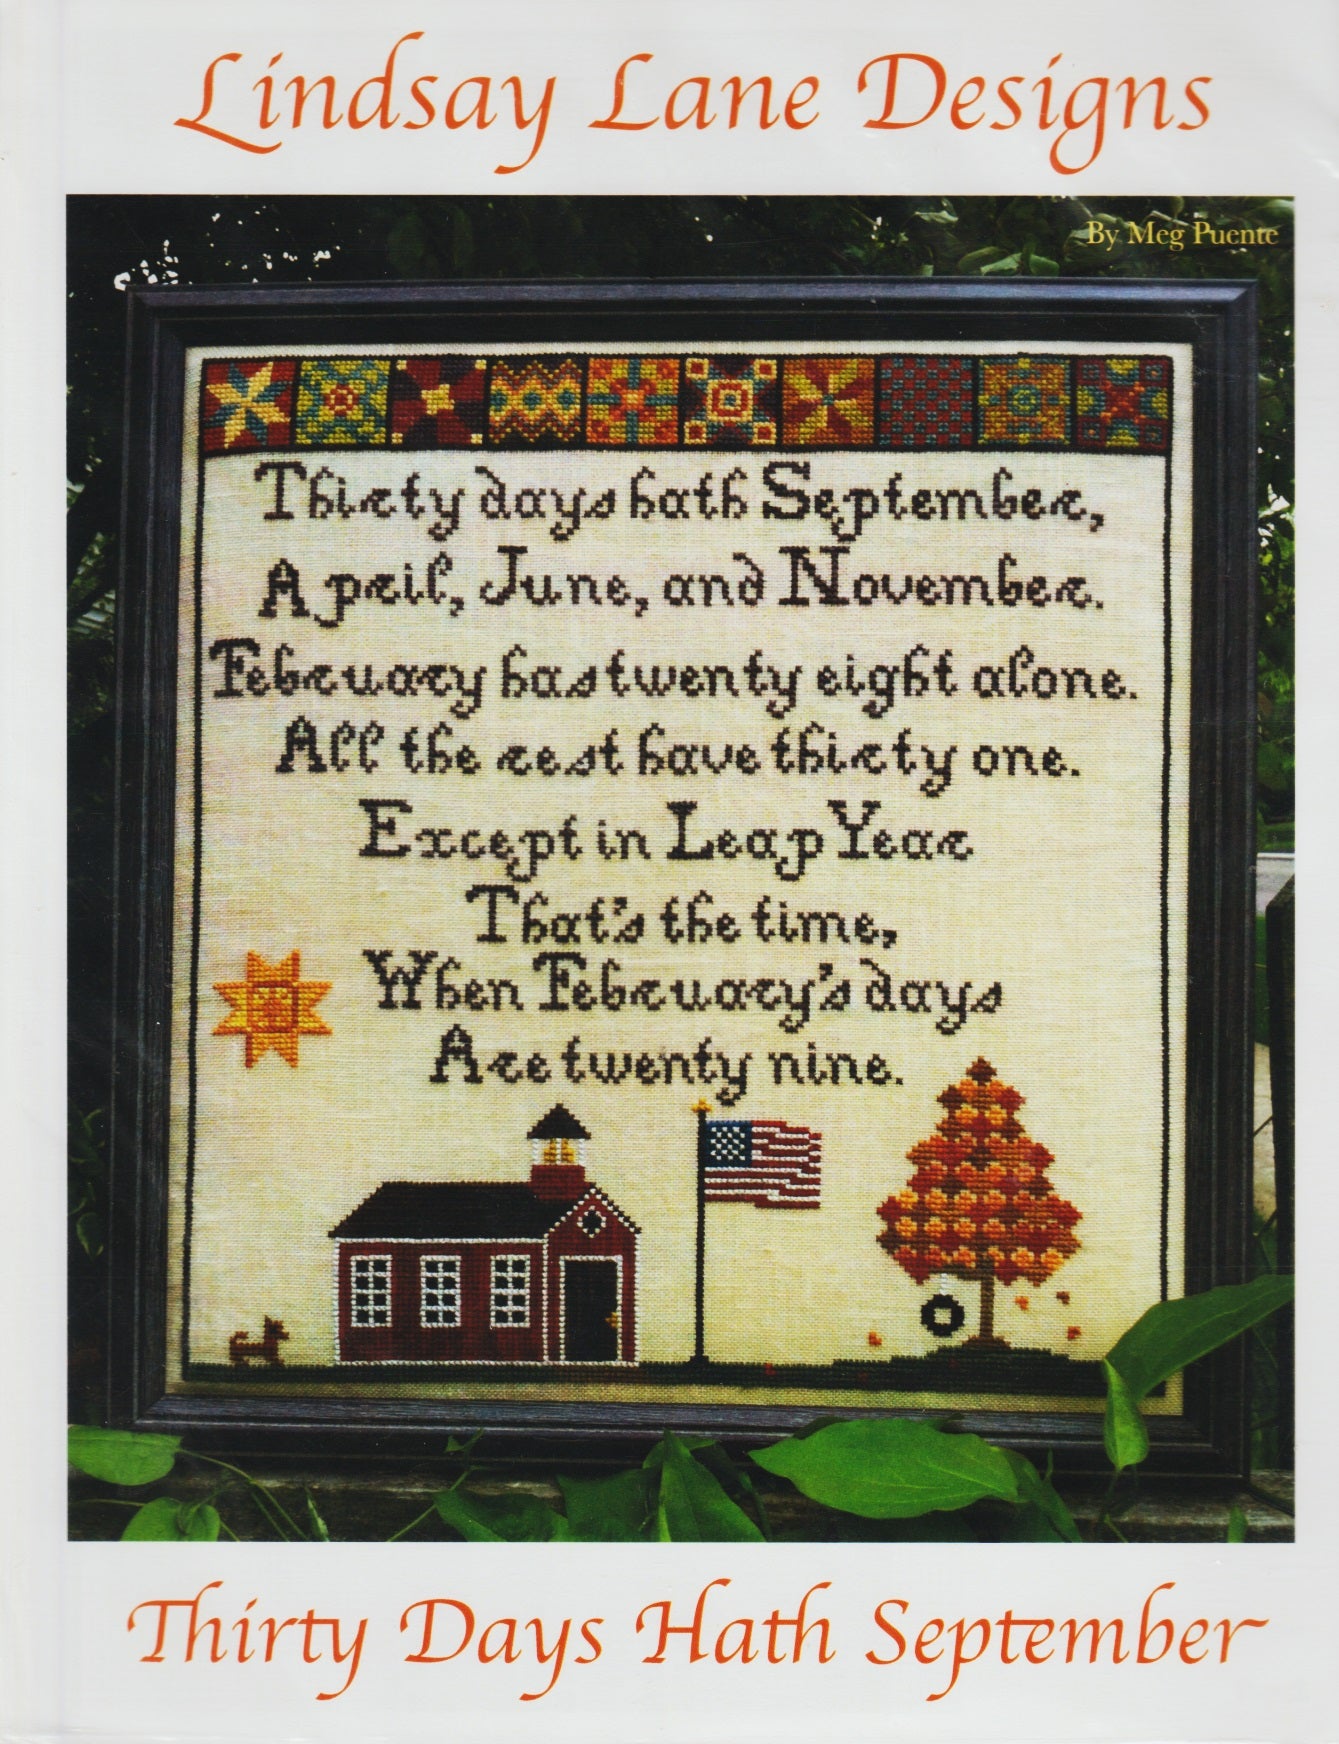 Lindsay Lane Designs
By Meg Puente
Thirty days hath September,
April, June, and November.
February has twenty eight alone.
All the rest have thirty one.
Except in Leap Year
That's the time,
When February's days
Are twenty nine.
Thirty Days Hath September